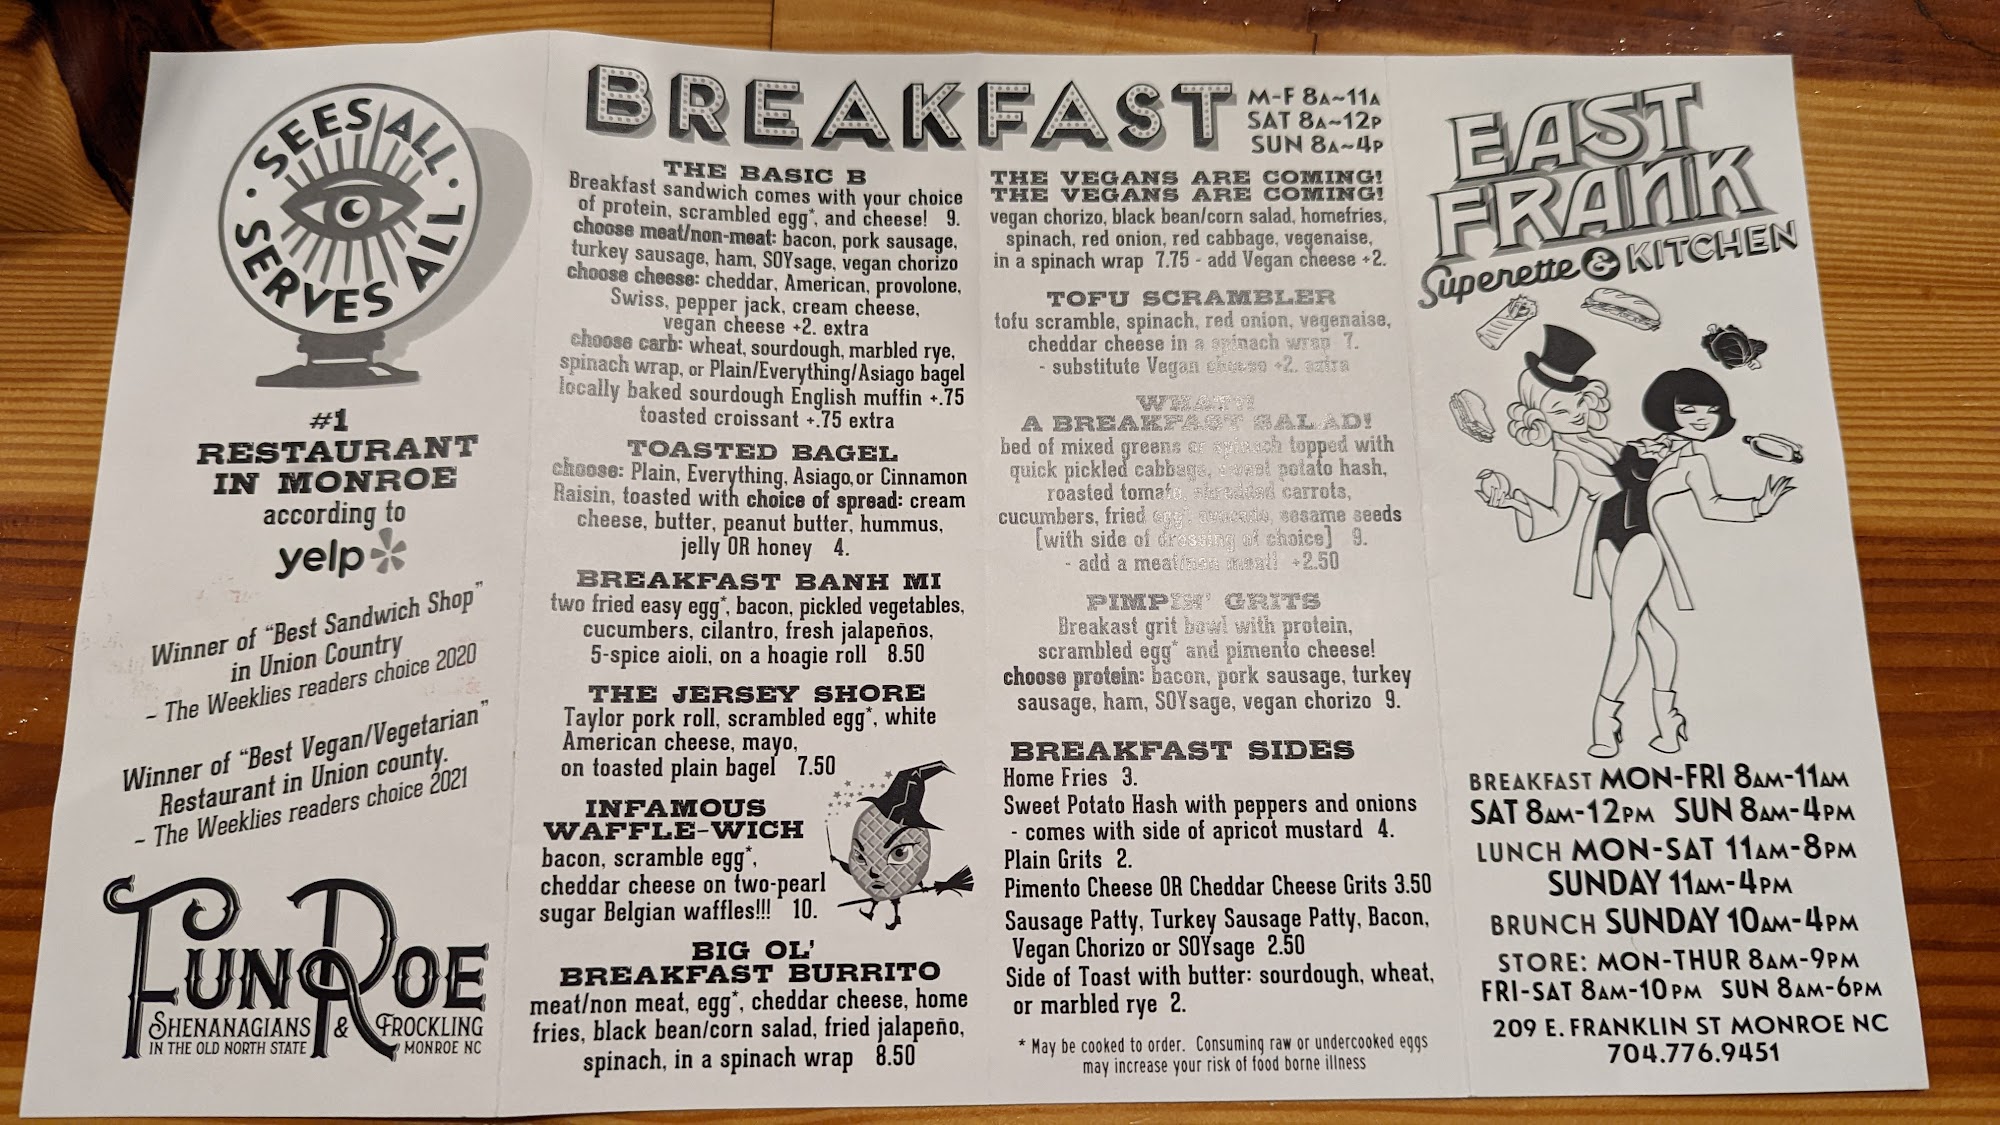 SEES ALL
SERVES ALL
#1
RESTAURANT
IN MONROE
according to
yelp
Winner of “Best Sandwich Shop”
in Union Country
~ The Weeklies readers choice 2020
Winner of “Best Vegan/Vegetarian”
Restaurant in Union county.
~ The Weeklies readers choice 2021
FUNROE
SHENANAGIANS & FROCKLING
IN THE OLD NORTH STATE MONROE NC
BREAKFAST
M-F 8A~11A
SAT 8A~12P
SUN 8A~4P
THE BASIC B
Breakfast sandwich comes with your choice
of protein, scrambled egg*, and cheese! 9.
choose meat/non-meat: bacon, pork sausage,
turkey sausage, ham, SOYsage, vegan chorizo
choose cheese: cheddar, American, provolone,
Swiss, pepper jack, cream cheese,
vegan cheese +2. extra
choose carb: wheat, sourdough, marbled rye,
spinach wrap, or Plain/Everything/Asiago bagel
locally baked sourdough English muffin +.75
toasted croissant +.75 extra
TOASTED BAGEL
choose: Plain, Everything, Asiago, or Cinnamon
Raisin, toasted with choice of spread: cream
cheese, butter, peanut butter, hummus,
jelly OR honey 4.
BREAKFAST BANH MI
two fried easy egg*, bacon, pickled vegetables,
cucumbers, cilantro, fresh jalapeños,
5-spice aioli, on a hoagie roll 8.50
THE JERSEY SHORE
Taylor pork roll, scrambled egg*, white
American cheese, mayo,
on toasted plain bagel 7.50
INFAMOUS
WAFFLE-WICH
bacon, scramble egg*,
cheddar cheese on two-pearl
sugar Belgian waffles!!! 10.
BIG OL'
BREAKFAST BURRITO
meat/non meat, egg*, cheddar cheese, home
fries, black bean/corn salad, fried jalapeño,
spinach, in a spinach wrap 8.50
THE VEGANS ARE COMING!
THE VEGANS ARE COMING!
vegan chorizo, black bean/corn salad, homefries,
spinach, red onion, red cabbage, vegenaise,
in a spinach wrap 7.75 - add Vegan cheese +2.
TOFU SCRAMBLER
tofu scramble, spinach, red onion, vegenaise,
cheddar cheese in a spinach wrap 7.
- substitute Vegan cheese +2. extra
WHAT?!
A BREAKFAST SALAD!
bed of mixed greens or spinach topped with
quick pickled cabbage, sweet potato hash,
roasted tomato, shredded carrots,
cucumbers, fried egg*, avocado, sesame seeds
[with side of dressing of choice] 9.
- add a meat/non meat! +2.50
PIMPIN' GRITS
Breakast grit bowl with protein,
scrambled egg* and pimento cheese!
choose protein: bacon, pork sausage, turkey
sausage, ham, SOYsage, vegan chorizo 9.
BREAKFAST SIDES
Home Fries 3.
Sweet Potato Hash with peppers and onions
- comes with side of apricot mustard 4.
Plain Grits 2.
Pimento Cheese OR Cheddar Cheese Grits 3.50
Sausage Patty, Turkey Sausage Patty, Bacon,
Vegan Chorizo or SOYsage 2.50
Side of Toast with butter: sourdough, wheat,
or marbled rye 2.
* May be cooked to order. Consuming raw or undercooked eggs
may increase your risk of food borne illness
EAST
FRANK
Superette & KITCHEN
BREAKFAST MON-FRI 8AM-11AM
SAT 8AM-12PM SUN 8AM-4PM
LUNCH MON-SAT 11AM-8PM
SUNDAY 11AM-4PM
BRUNCH SUNDAY 10AM-4PM
STORE: MON-THUR 8AM-9PM
FRI-SAT 8AM-10PM SUN 8AM-6PM
209 E. FRANKLIN ST MONROE NC
704.776.9451